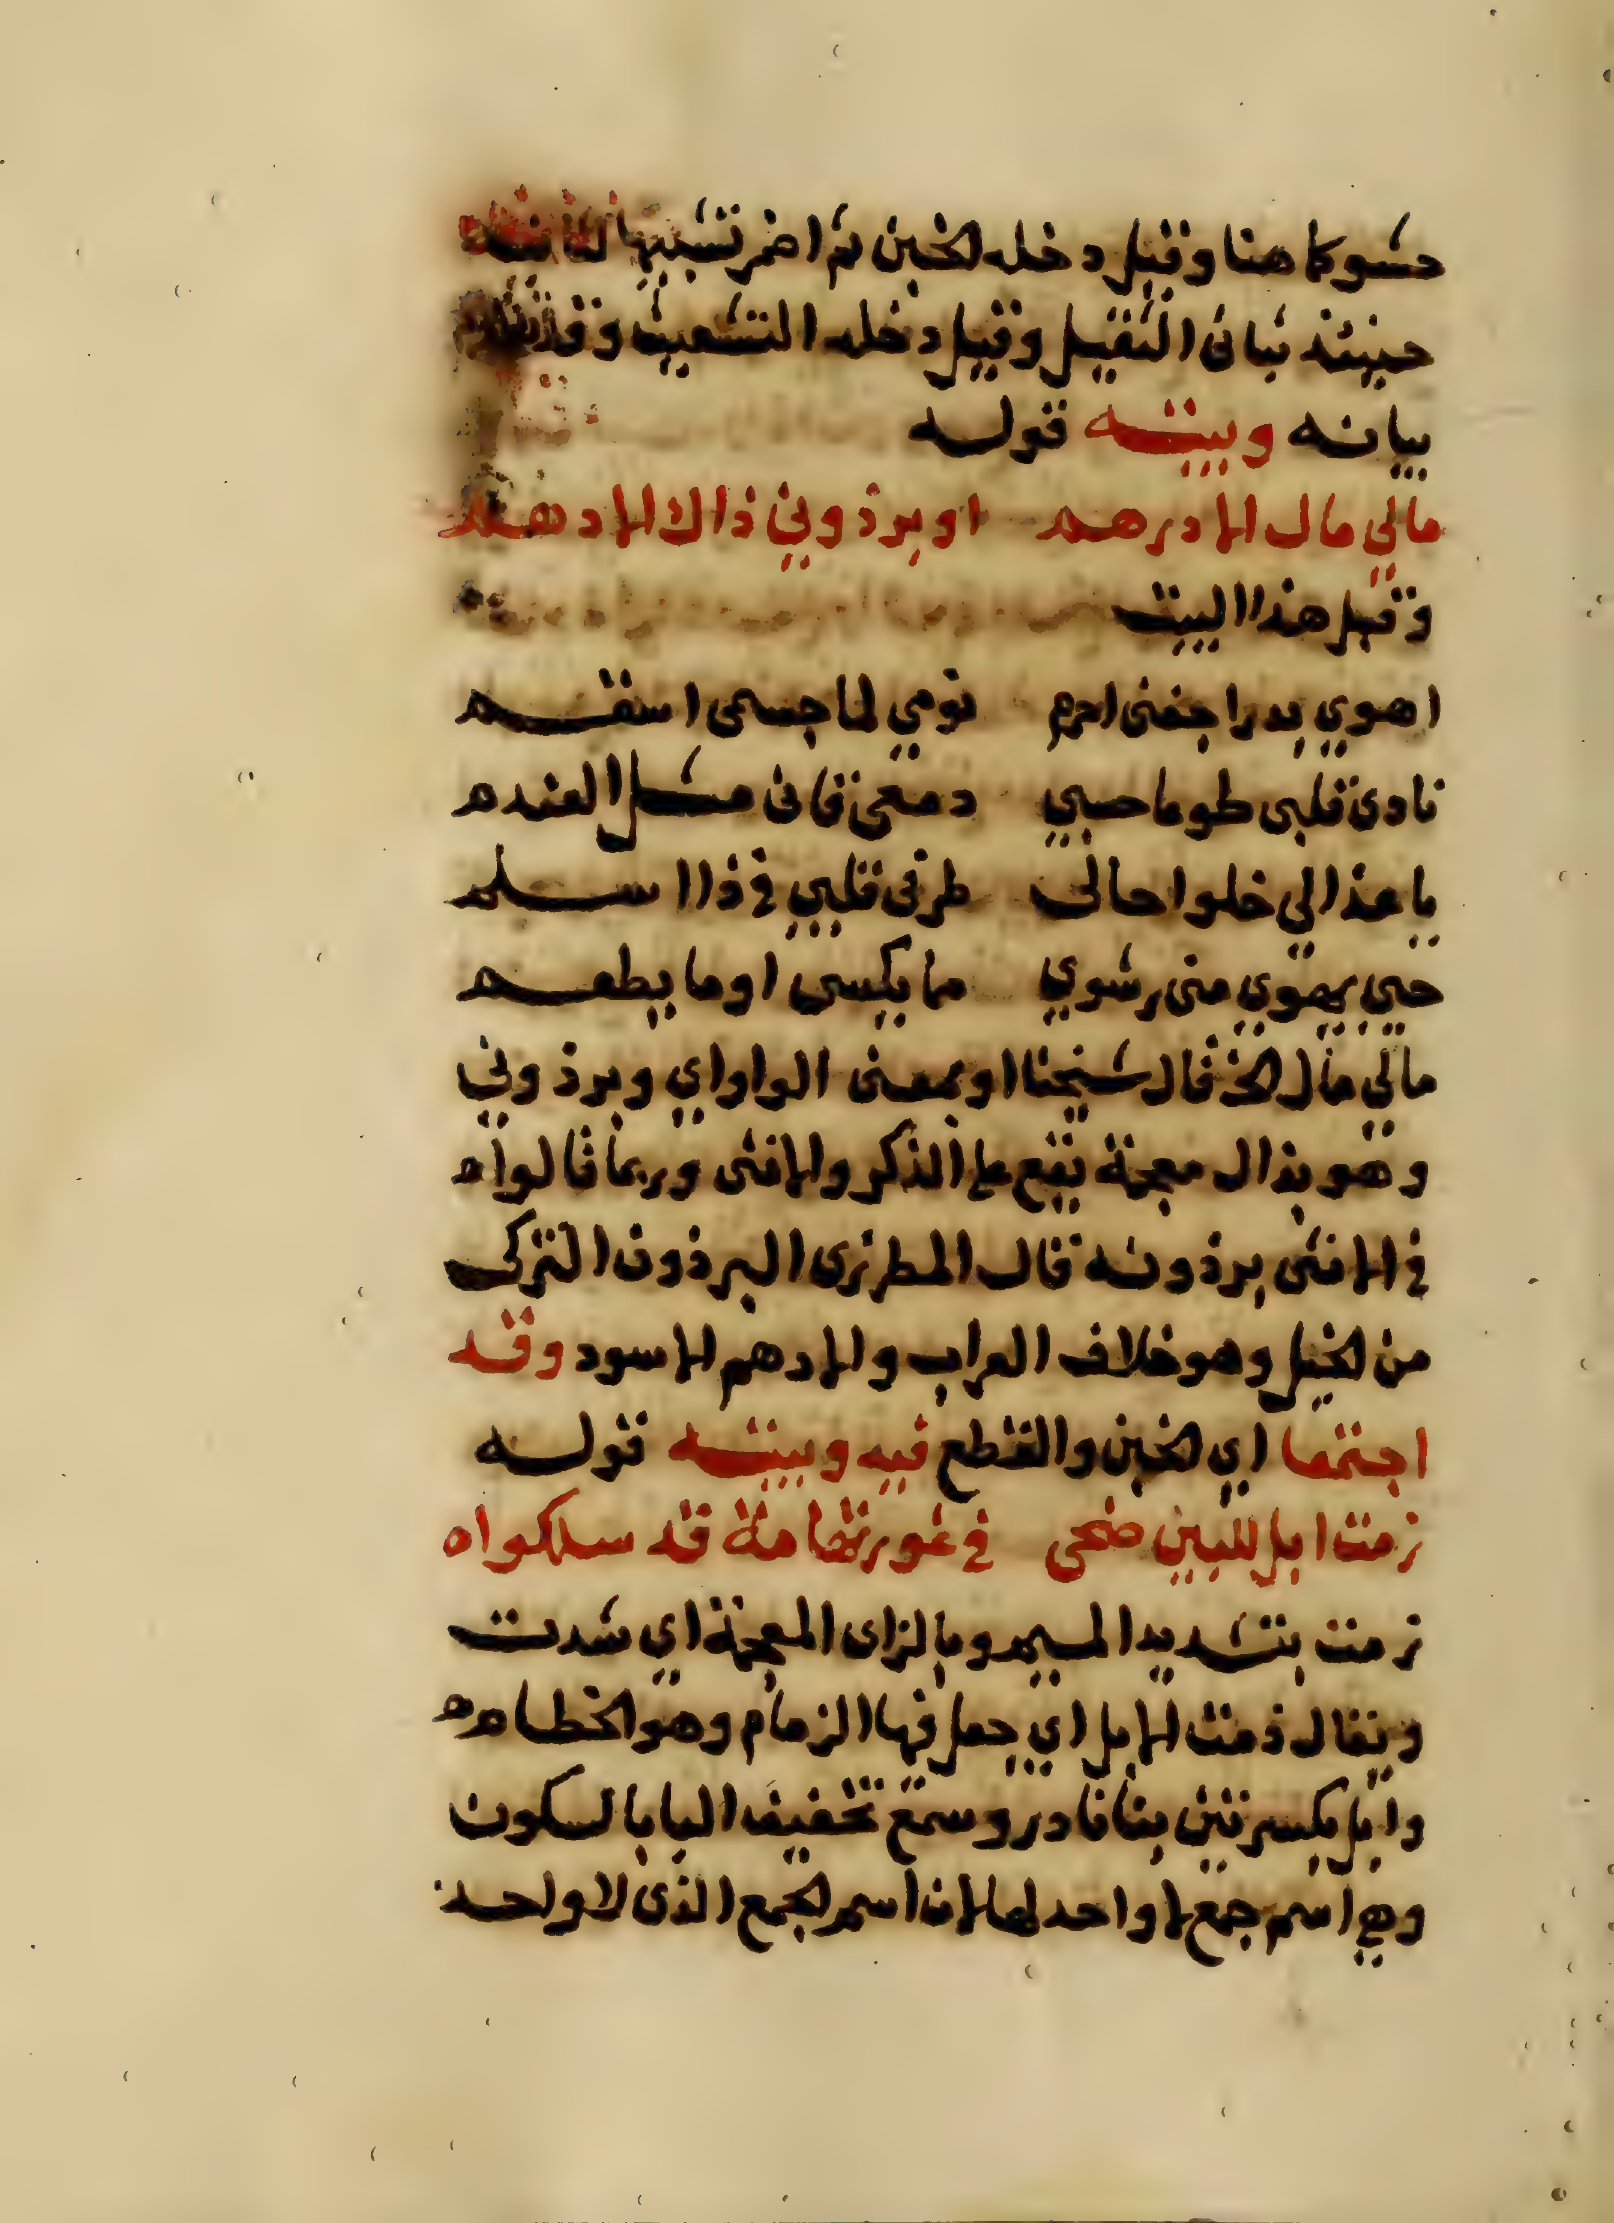 حشو كما هنا وقيل دخله الخبن ثم اضمر تشبيها
حينئذ بثانى الثقيل وقيل دخله التشعيث وقد
بيانه وبيته قوله
مالي مال الا درهم او برذوني ذاك الادهم
وقبل هذا البيت
اهوي بدرا جفنى احرم نومي لما جسمى اسقم
نادى قلبى طوعا حبي دمعى قانى مثل العندم
يا عذالي خلوا حالى طرفى قلبي في ذا اسلم
حبي يهوي منى رشوي مما يكسى او ما يطعم
مالي مال الخ قال شيخنا او بمعنى الواو اي وبرذوني
وهو بذال معجمة يقع على الذكر والانثى وربما قالوا
في الانثى برذونه قال المطرزى البرذون التركى
من الخيل وهو خلاف العراب والادهم الاسود وقد
اجتمعا اي الخبن والقطع فيه وبيته قوله
زمت ابل للبين ضحى في غور تهامة قد سلكوا
زمت بتشديد الميم وبالزاى المعجمة اي شدت
ويقال ذمت الابل اي جعل فيها الزمام وهو الخطام
وابل بكسرتين بنا نادر وسمع تخفيف البا بالسكون
وهي اسم جمع لا واحد لها لان اسم الجمع الذى لا واحد